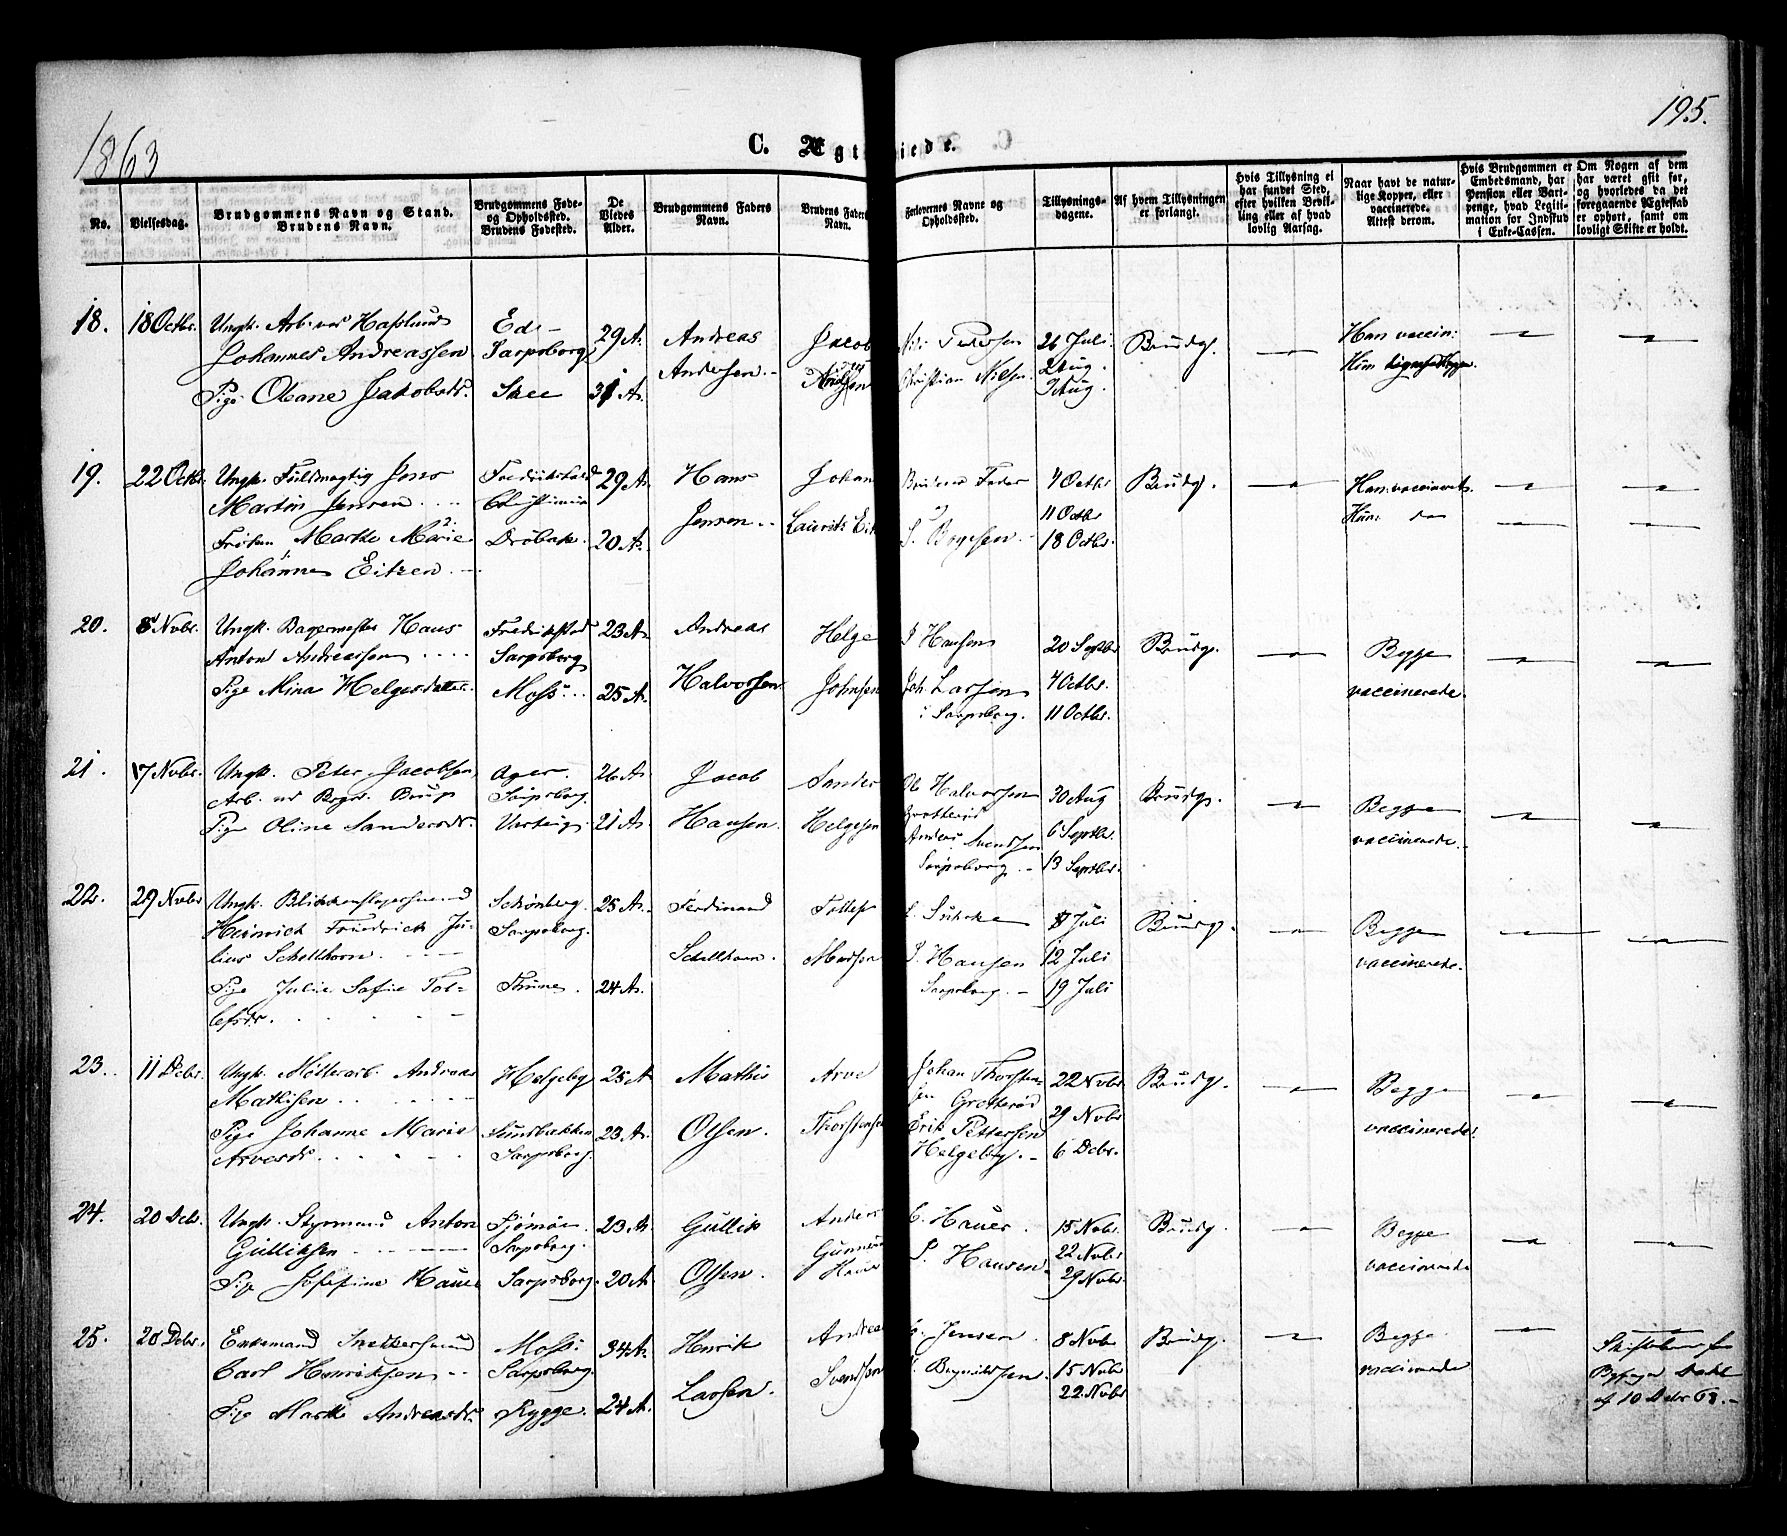 1863
195.
C. Ægteviede.
No.
Vielsesdag.
Brudgommens Navn og Stand.
Brudens Navn.
Brudgommens Føde-
og Opholdssted.
Brudens Fødested.
De
Viedes
Alder.
Brudgommens Faders
Navn.
Brudens Faders
Navn.
Forlovernes Navne og
Opholdssted.
Tillysnings-
dagene.
Af hvem Tillysningen
er forlangt.
Hvis Tillysning ei
har fundet Sted,
efter hvilken Bevil-
ling eller af hvad
lovlig Aarsag.
Naar havt de natur-
lige Kopper, eller
vaccinerede.
Attest derom.
Hvis Brudgommen er
Embedsmand, har
Pension eller Vart-
penge, hvad Legiti-
mation for Indskud
i Enke-Cassen.
Om Nogen af dem
har været gift før,
og hvorledes da det
foregaaende Ægteskab
er ophørt, samt om
lovligt Skifte er holdt.
18. 18 Octbr. Ungk. Arb. ved Hafslund
Johannes Andreassen
Pige Oleane Jakobsdr.
Ed
Sarpsborg
Skee
29 A.
31 A.
Andreas
Andersen
Jacob
Christian Nilsen
26 Juli
2 Aug.
9 Aug.
Brudg.
Han vaccin:
Hun
19. 22 Octbr. Ungk. Fuldmægtig Jens
Martin Jensen
Frøken Marthe Marie
Johanne Eitzen
Fredrikshald
Christiania
Drøbak
29 A.
20 A.
Hans
Jensen
Johan
Laurits Eit
Brudens Fader
og
Boysen
4 Octbr
11 Octbr
18 Octbr.
Brudg.
Han vaccineret.
Hun do
20. 8 Nvbr. Ungk. Bagermester Hans
Anton Andreassen
Pige Mina Helgesdatter
Fredrikstad
Sarpsborg
Moss
23 A.
25 A.
Andreas
Halvorsen
Helge
Johnsen
P Hansen
Joh. Larsen
i Sarpsborg.
20 Septbr
4 Octbr.
11 Octbr.
Brudg.
Begge
vaccinerede.
21. 17 Nvbr. Ungk. Peter Jacobsen
Arb. ved Borg. Brug
Pige Oline Sandersdr.
Ager.
Sarpsborg.
Varteig.
26 A.
21 A.
Jacob
Hansen.
Sander
Helgesen
Ol Halvorsen
Grotterød
Anders Svendsen
Sarpsborg
30 Aug
6 Septbr.
13 Septbr.
Brudg.
Begge
vaccinerede.
22. 29 Nvbr Ungk. Blikkenslagersvend
Heinrich Friedrich Ju-
lius Schellhorn
Pige Julie Sofie Tol-
lefsdr.
Schönberg
Sarpsborg.
Thune.
25 A.
24 A.
Ferdinand
Schellhorn.
Tollef
Madsen
P. Hansen
Sarpsborg.
5 Juli
12 Juli
19 Juli
Brudg.
Begge
vaccinerede.
23. 11 Debr. Ungk. Møllerarb. Andreas
Mathisen
Pige Johanne Marie
Arvesdr.
Helgeby
Sundbakken
Sarpsborg.
25 A
23 A.
Mathis
Olsen.
Arve
Thorstensen
Johan Thorsten-
sen Grotterød
Erik Pettersen
Helgeby.
22 Nvbr
29 Nvbr
6 Debr.
Brudg.
Begge
vaccinerede.
24. 20 Deb. Ungk. Styrmand Anton
Gulliksen
Pige Josefine Hauer
Tjømø
Sarpsborg.
Sarpsborg.
23 A.
20 A
Gullik
Olsen.
Anders
Hauer
C. Hauer
P. Hansen
15 Nvbr.
22 Nvbr
29 Nvbr.
Brudg.
Begge
vaccinerede
25. 20 Debr. Enkemand Snedkersvend
Carl Henriksen
Pige Marthe Andreasdr.
Moss
Sarpsborg.
Rygge.
34 A.
24 A.
Henrik
Larsen.
Andreas
Svendsen
Jensen
8 Nvbr
15 Nvbr
22. Nvbr
Brudg.
Begge
vaccinerede
Byfoged Dahl
af 10 Debr 63.